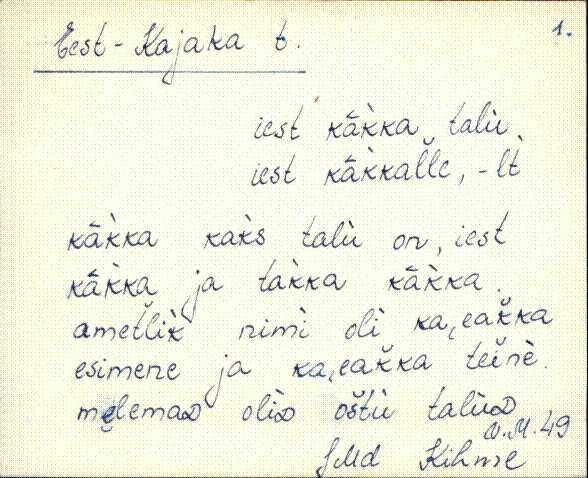 Eest-Kajaka t.
1.
iest kǟ̀kka talù
iest kǟ̀kkaľľe, -lt̀
kǟ̀kka kak̀s talù on, iest
kǟ̀kka ja tak̀ka kǟ̀kka.
ametľik̀ nimì oli ka,eak̆ka
esimene ja ka,eak̆ka teinè.
mȩlemaᴅ oliᴅ ošťù taluᴅ
V.M. 49
Kihme